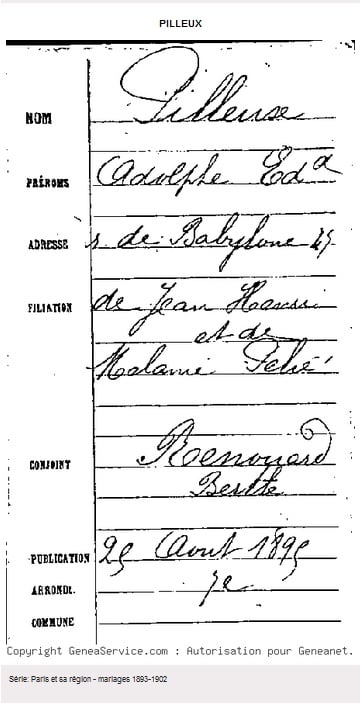 PILLEUX
NOM Pilleux
PRÉNOMS Adolphe Edd
ADRESSE r. de Babylone 45
FILIATION de Jean Henri
et de
Melanie
CONJOINT Renouard
Berthe
PUBLICATION 25 Aout 1895
ARRONDt. 7e
COMMUNE
Copyright GeneaService.com : Autorisation pour Geneanet.
Série: Paris et sa région - mariages 1893-1902